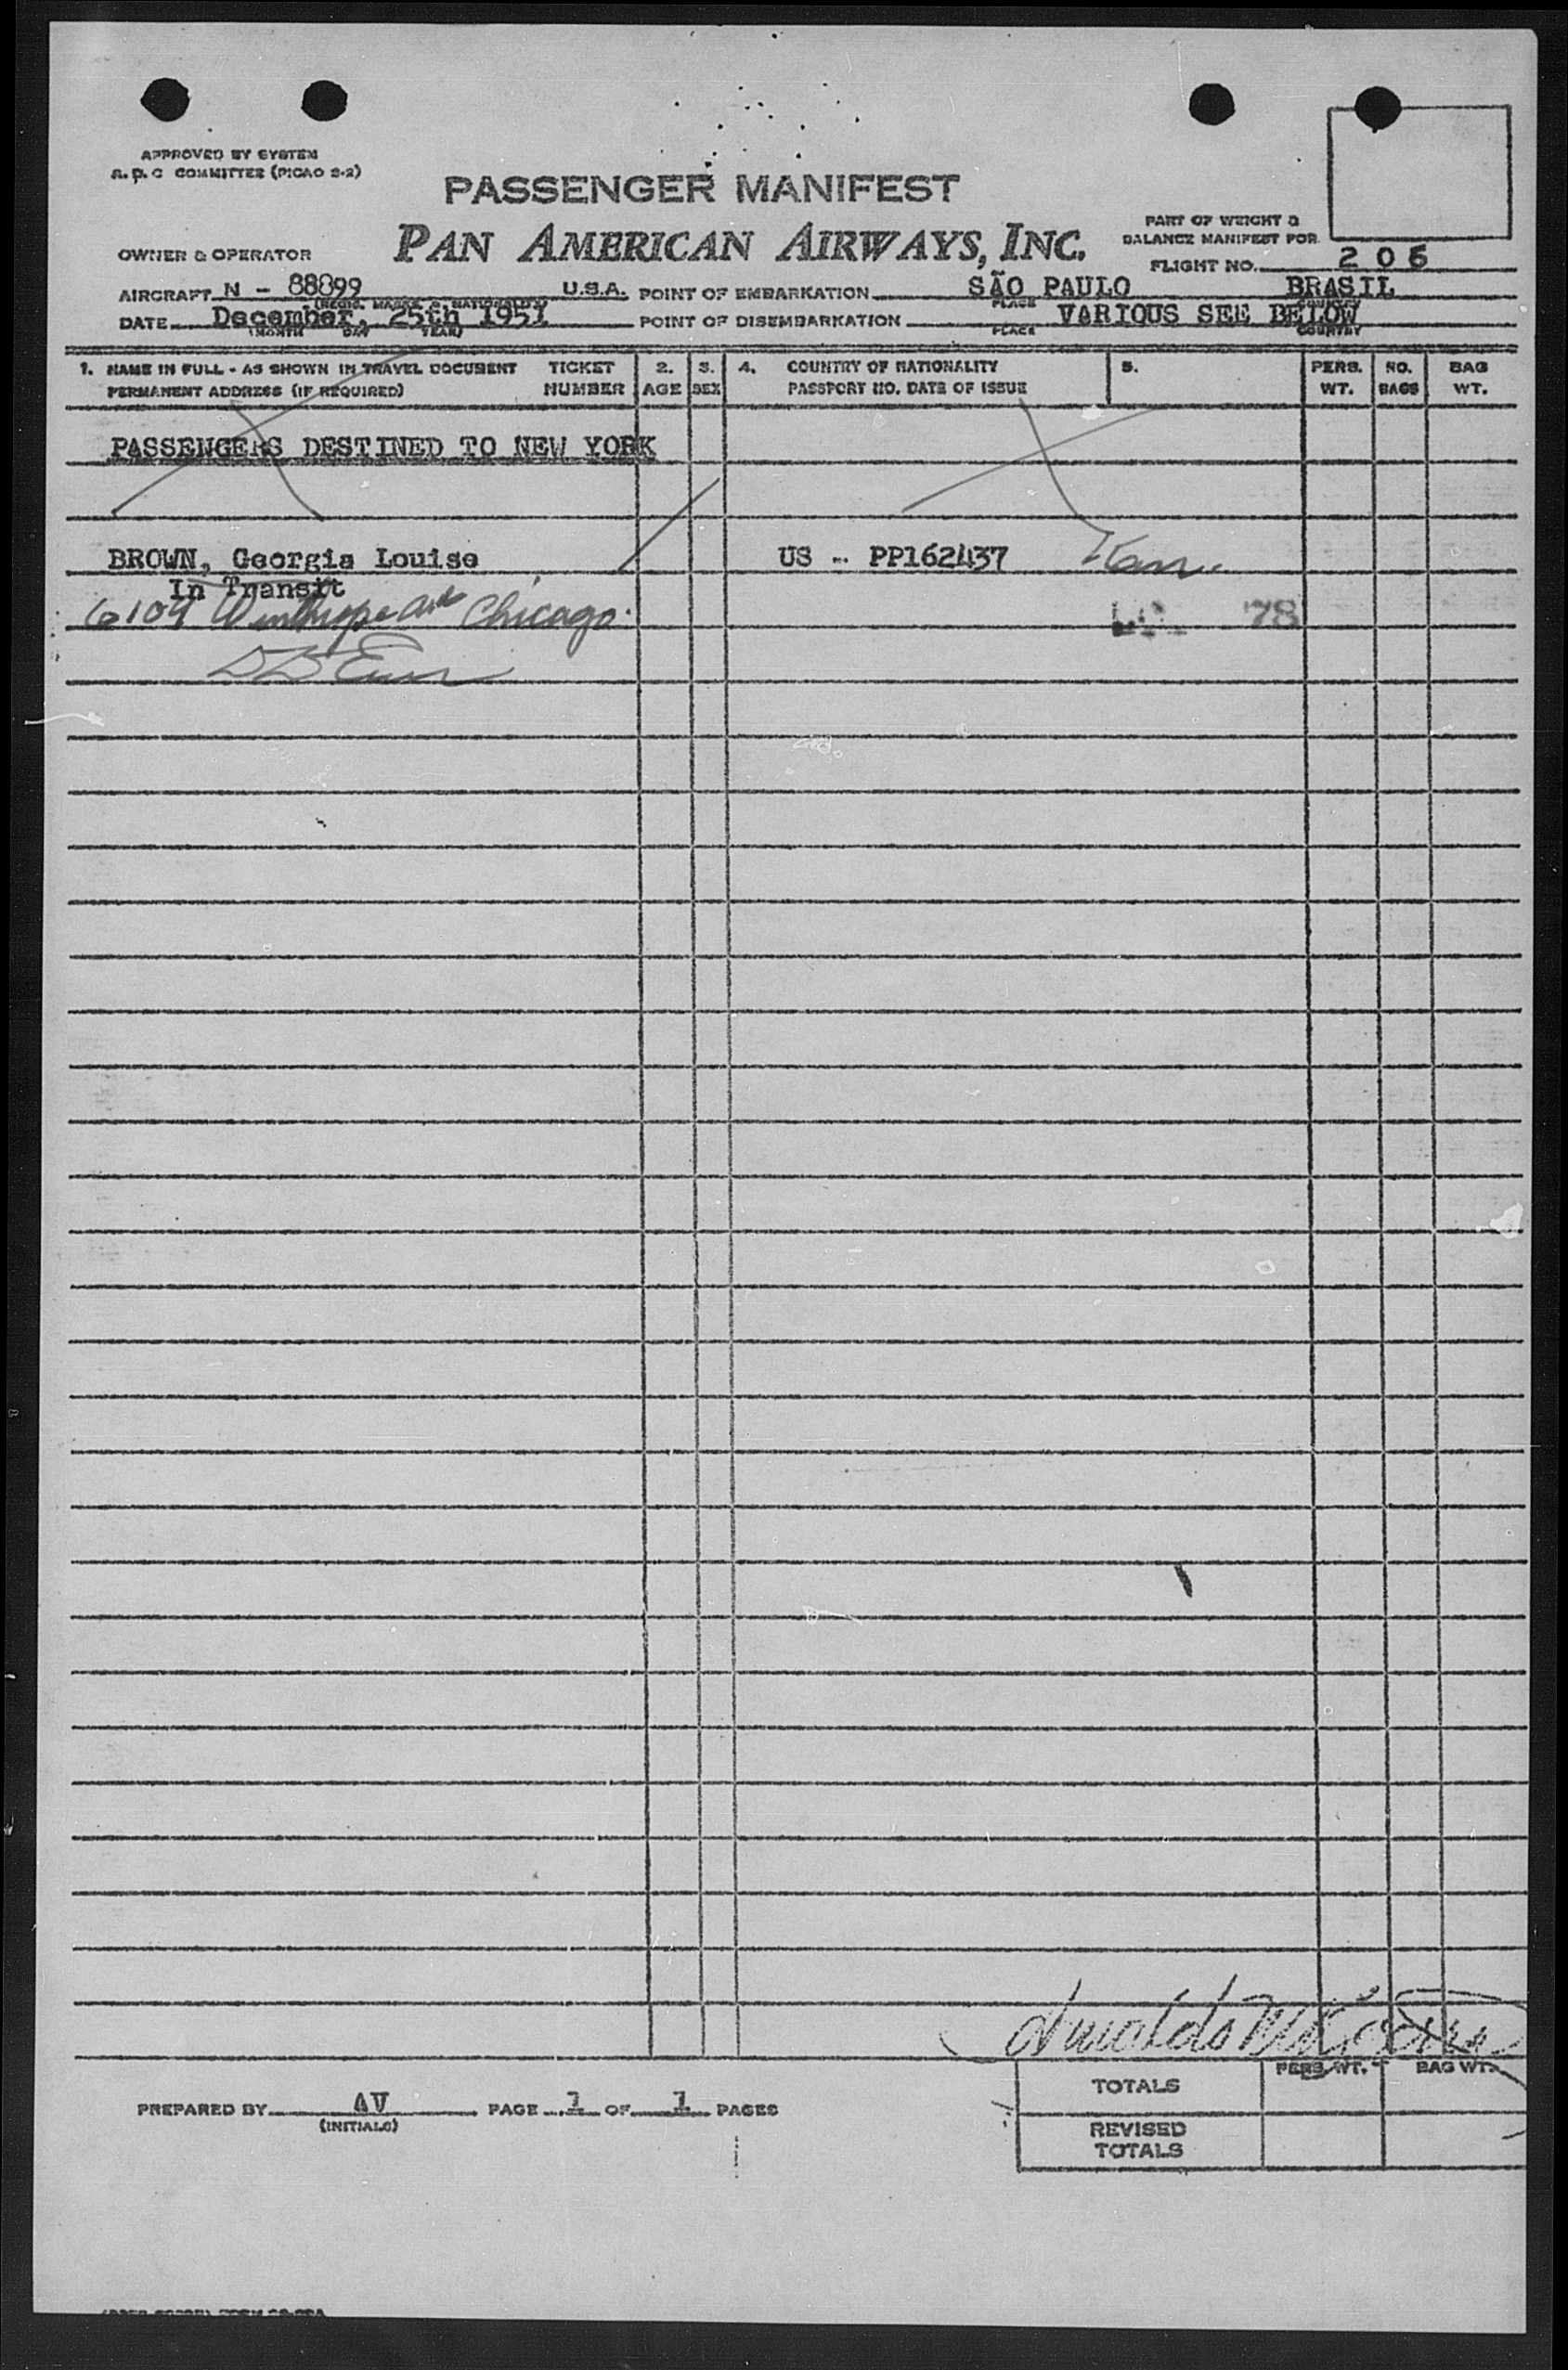 APPROVED BY SYSTEM
R. P. C COMMITTEE (PICAO S-2)
PASSENGER MANIFEST
PAN AMERICAN AIRWAYS, INC.
PART OF WEIGHT &
BALANCE MANIFEST FOR
FLIGHT NO. 206
OWNER & OPERATOR
AIRCRAFT N - 88899 U.S.A. POINT OF EMBARKATION SÃO PAULO BRASIL
(REGIS. MARKS & NATIONALITY) PLACE COUNTRY
DATE December, 25th 1951 POINT OF DISEMBARKATION VARIOUS SEE BELOW
(MONTH DAY YEAR) PLACE COUNTRY
1. NAME IN FULL - AS SHOWN IN TRAVEL DOCUMENT TICKET 2. 3. 4. COUNTRY OF NATIONALITY 5. PERS. NO. BAG
PERMANENT ADDRESS (IF REQUIRED) NUMBER AGE SEX PASSPORT NO. DATE OF ISSUE WT. BAGS WT.
PASSENGERS DESTINED TO NEW YORK
BROWN, Georgia Louise US - PP162437
In Transit
6109 Winthrope Ave Chicago. 78
TOTALS PERS. WT. BAG WT.
REVISED
TOTALS
PREPARED BY AV PAGE 1 OF 1 PAGES
(INITIALS)